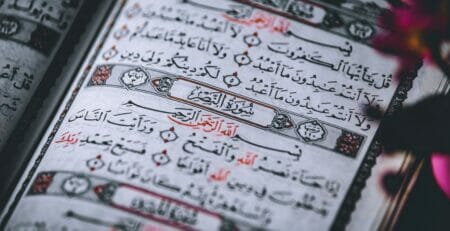 بِسْمِ اللَّهِ الرَّحْمَٰنِ الرَّحِيمِ
قُلْ يَٰٓأَيُّهَا الْكَٰفِرُونَ ۝ لَآ أَعْبُدُ مَا تَعْبُدُونَ ۝
وَلَآ أَنتُمْ عَٰبِدُونَ مَآ أَعْبُدُ ۝ وَلَآ أَنَا۠ عَابِدٌ مَّا عَبَدتُّمْ ۝
وَلَآ أَنتُمْ عَٰبِدُونَ مَآ أَعْبُدُ ۝ لَكُمْ دِينُكُمْ وَلِيَ دِينِ
سُورَةُ النَّصْرِ
بِسْمِ اللَّهِ الرَّحْمَٰنِ الرَّحِيمِ
إِذَا جَآءَ نَصْرُ اللَّهِ وَالْفَتْحُ ۝ وَرَأَيْتَ النَّاسَ
يَدْخُلُونَ فِي دِينِ اللَّهِ أَفْوَاجًا ۝ فَسَبِّحْ بِحَمْدِ رَبِّكَ
وَاسْتَغْفِرْهُ إِنَّهُ كَانَ تَوَّابًا
سُورَةُ